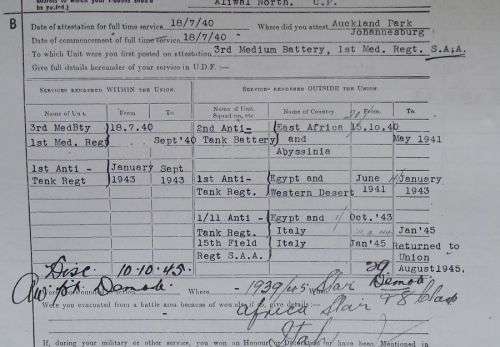 Aliwal North. C.P.
B
Date of attestation for full time service 18/7/40 Where did you attest Auckland Park
Johannesburg
Date of commencement of full time service 18/7/40
To which Unit were you first posted on attestation 3rd Medium Battery, 1st Med. Regt. S.A.A.
Give full details hereunder of your service in U.D.F. :—
SERVICES RENDERED WITHIN THE UNION. SERVICES RENDERED OUTSIDE THE UNION.
Name of Unit. From To Name of Unit, Squadron, etc. Name of Country From. To.
3rd MedBty 18.7.40 2nd Anti- East Africa 15.10.40
1st Med. Regt Sept'40 Tank Battery and May 1941
Abyssinia
1st Anti - January Sept 1st Anti- Egypt and June January
Tank Regt 1943 1943 Tank Regt. Western Desert 1941 1943
1/11 Anti - Egypt and Oct.'43
Tank Regt. Italy Jan'45
15th Field Italy Jan'45 Returned to
Regt S.A.A. Union
August1945.
Disc. 10.10.45. 1939/45 Star Demob
Where
Were you evacuated from a battle area because of wounds if so give details :—
Africa Star
If, during your military or other service, you won an Honour or Decoration or have been